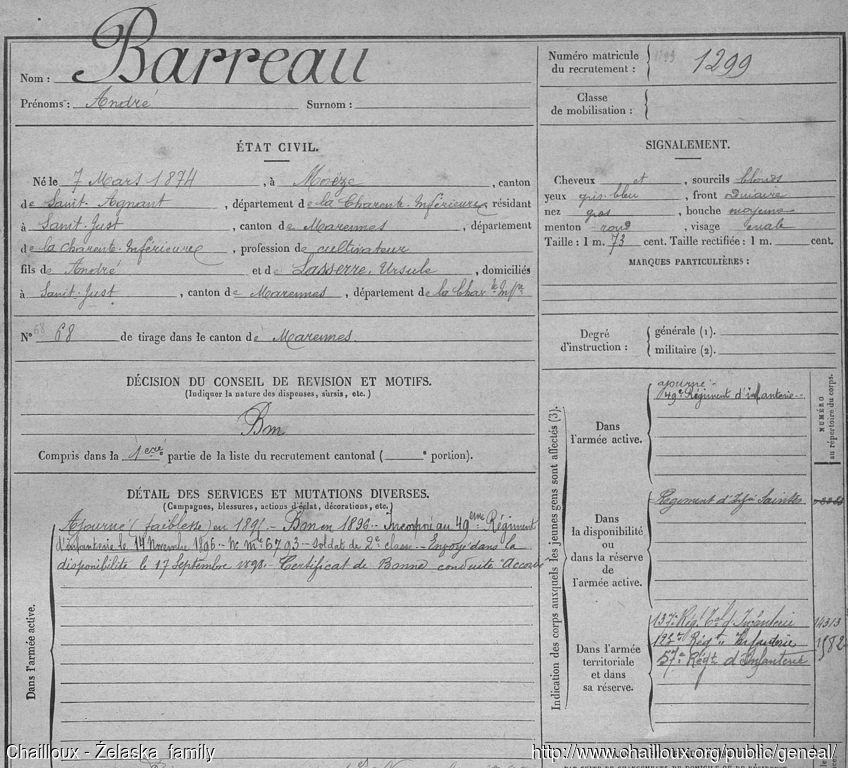 Nom : Barreau
Prénoms : André Surnom :
ÉTAT CIVIL.
Né le 7 Mars 1874, à Moëze, canton
de Saint-Agnant, département de la Charente-Inférieure, résidant
à Saint-Just, canton de Marennes, département
de la Charente-Inférieure, profession de cultivateur
fils de André et de Lasserre, Ursule, domiciliés
à Saint-Just, canton de Marennes, département de la Char.te Inf.re
N° 68 68 de tirage dans le canton de Marennes.
DÉCISION DU CONSEIL DE REVISION ET MOTIFS.
(Indiquer la nature des dispenses, sursis, etc.)
Bon
Compris dans la 1ere partie de la liste du recrutement cantonal ( portion).
DÉTAIL DES SERVICES ET MUTATIONS DIVERSES.
(Campagnes, blessures, actions d'éclat, décorations, etc.)
Ajourné (faiblesse) en 1895 - Bon en 1896 - Incorporé au 49eme Régiment
d'infanterie le 14 Novembre 1896 - N° Mle 6793 - Soldat de 2e classe - Envoyé dans la
disponibilité le 17 Septembre 1898 - Certificat de Bonne conduite "Accordé
Dans l'armée active.
Numéro matricule
du recrutement : 1299
Classe
de mobilisation :
SIGNALEMENT.
Cheveux et, sourcils blonds
yeux gris bleu, front ordinaire
nez gros, bouche moyenne
menton rond, visage ovale
Taille : 1 m. 73 cent. Taille rectifiée : 1 m. cent.
MARQUES PARTICULIÈRES :
Degré
d'instruction :
générale (1).
militaire (2).
Indication des corps auxquels les jeunes gens sont affectés (3).
NUMÉRO
au répertoire du corps.
Dans
l'armée active.
ajourné
49e Régiment d'infanterie
Dans
la disponibilité
ou
dans la réserve
de
l'armée active.
Régiment d'Inf.ie Saintes
Dans l'armée
territoriale
et dans
sa réserve.
137e Rég.t d'Infanterie 14313
Rég.t Infanterie 1982
57e Rég.t d'Infanterie
Chailloux - Żelaska family
http://www.chailloux.org/public/geneal/